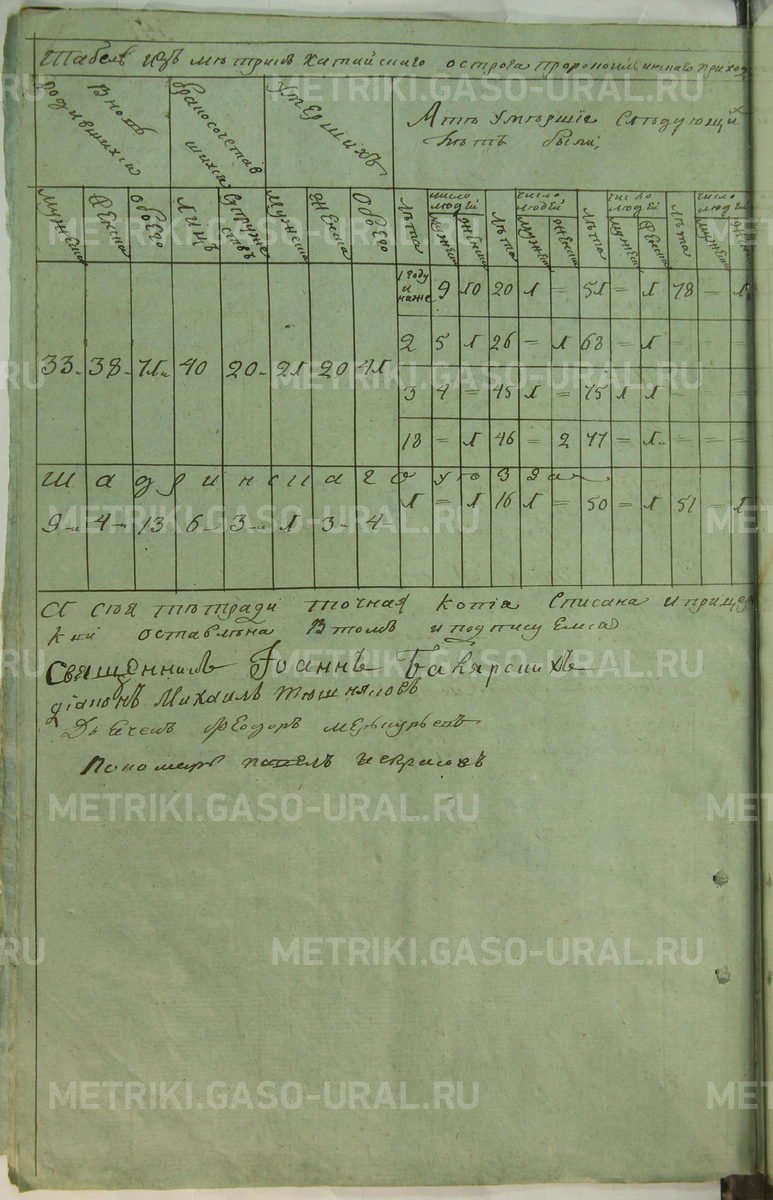 Табель изъ метрикъ Катайскаго острога пророкоильинскаго приход
Вновь родившихся
бракосочетавшихся
Умершихъ
Лѣтъ умершіе Следующихъ
лѣтъ были,
мужеска женска обоего лицъ супружествъ мужеска женска обоего
лѣта число людей мужеска женска лѣта число людей мужеска женска лѣта число людей мужеска женска лѣта число людей мужеска женска
1 году и ниже 9 10 20 1 = 51 = 1 78 = 1
2 5 1 26 = 1 68 = 1 = = =
33 38 71 40 20 21 20 41
3 4 = 45 1 = 75 1 1 = = =
18 = 1 46 = 2 77 = 1 = = =
Шадринскаго уѣзда
1 = 1 16 1 = 50 = 1 51 = 1
9 4 13 6 3 1 3 4
С сей тетради точная копія Списана и при цер
кви оставлена В томъ и подписуемса
Священникъ Іоаннъ
діаконъ Михаилъ
Дьячекъ Феодоръ меркурьевъ
Пономарь павелъ некрасовъ
METRIKI.GASO-URAL.RU